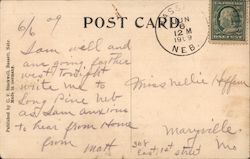 6/6 09
POST CARD.
JUN
12 M
1909
NEB.
I am well and
are going farther
west tonight
write me to
Long Pine Neb
as I am anxious
to hear from Home
from Matt
Miss Nellie
Maryville
308
East 1st street
Mo